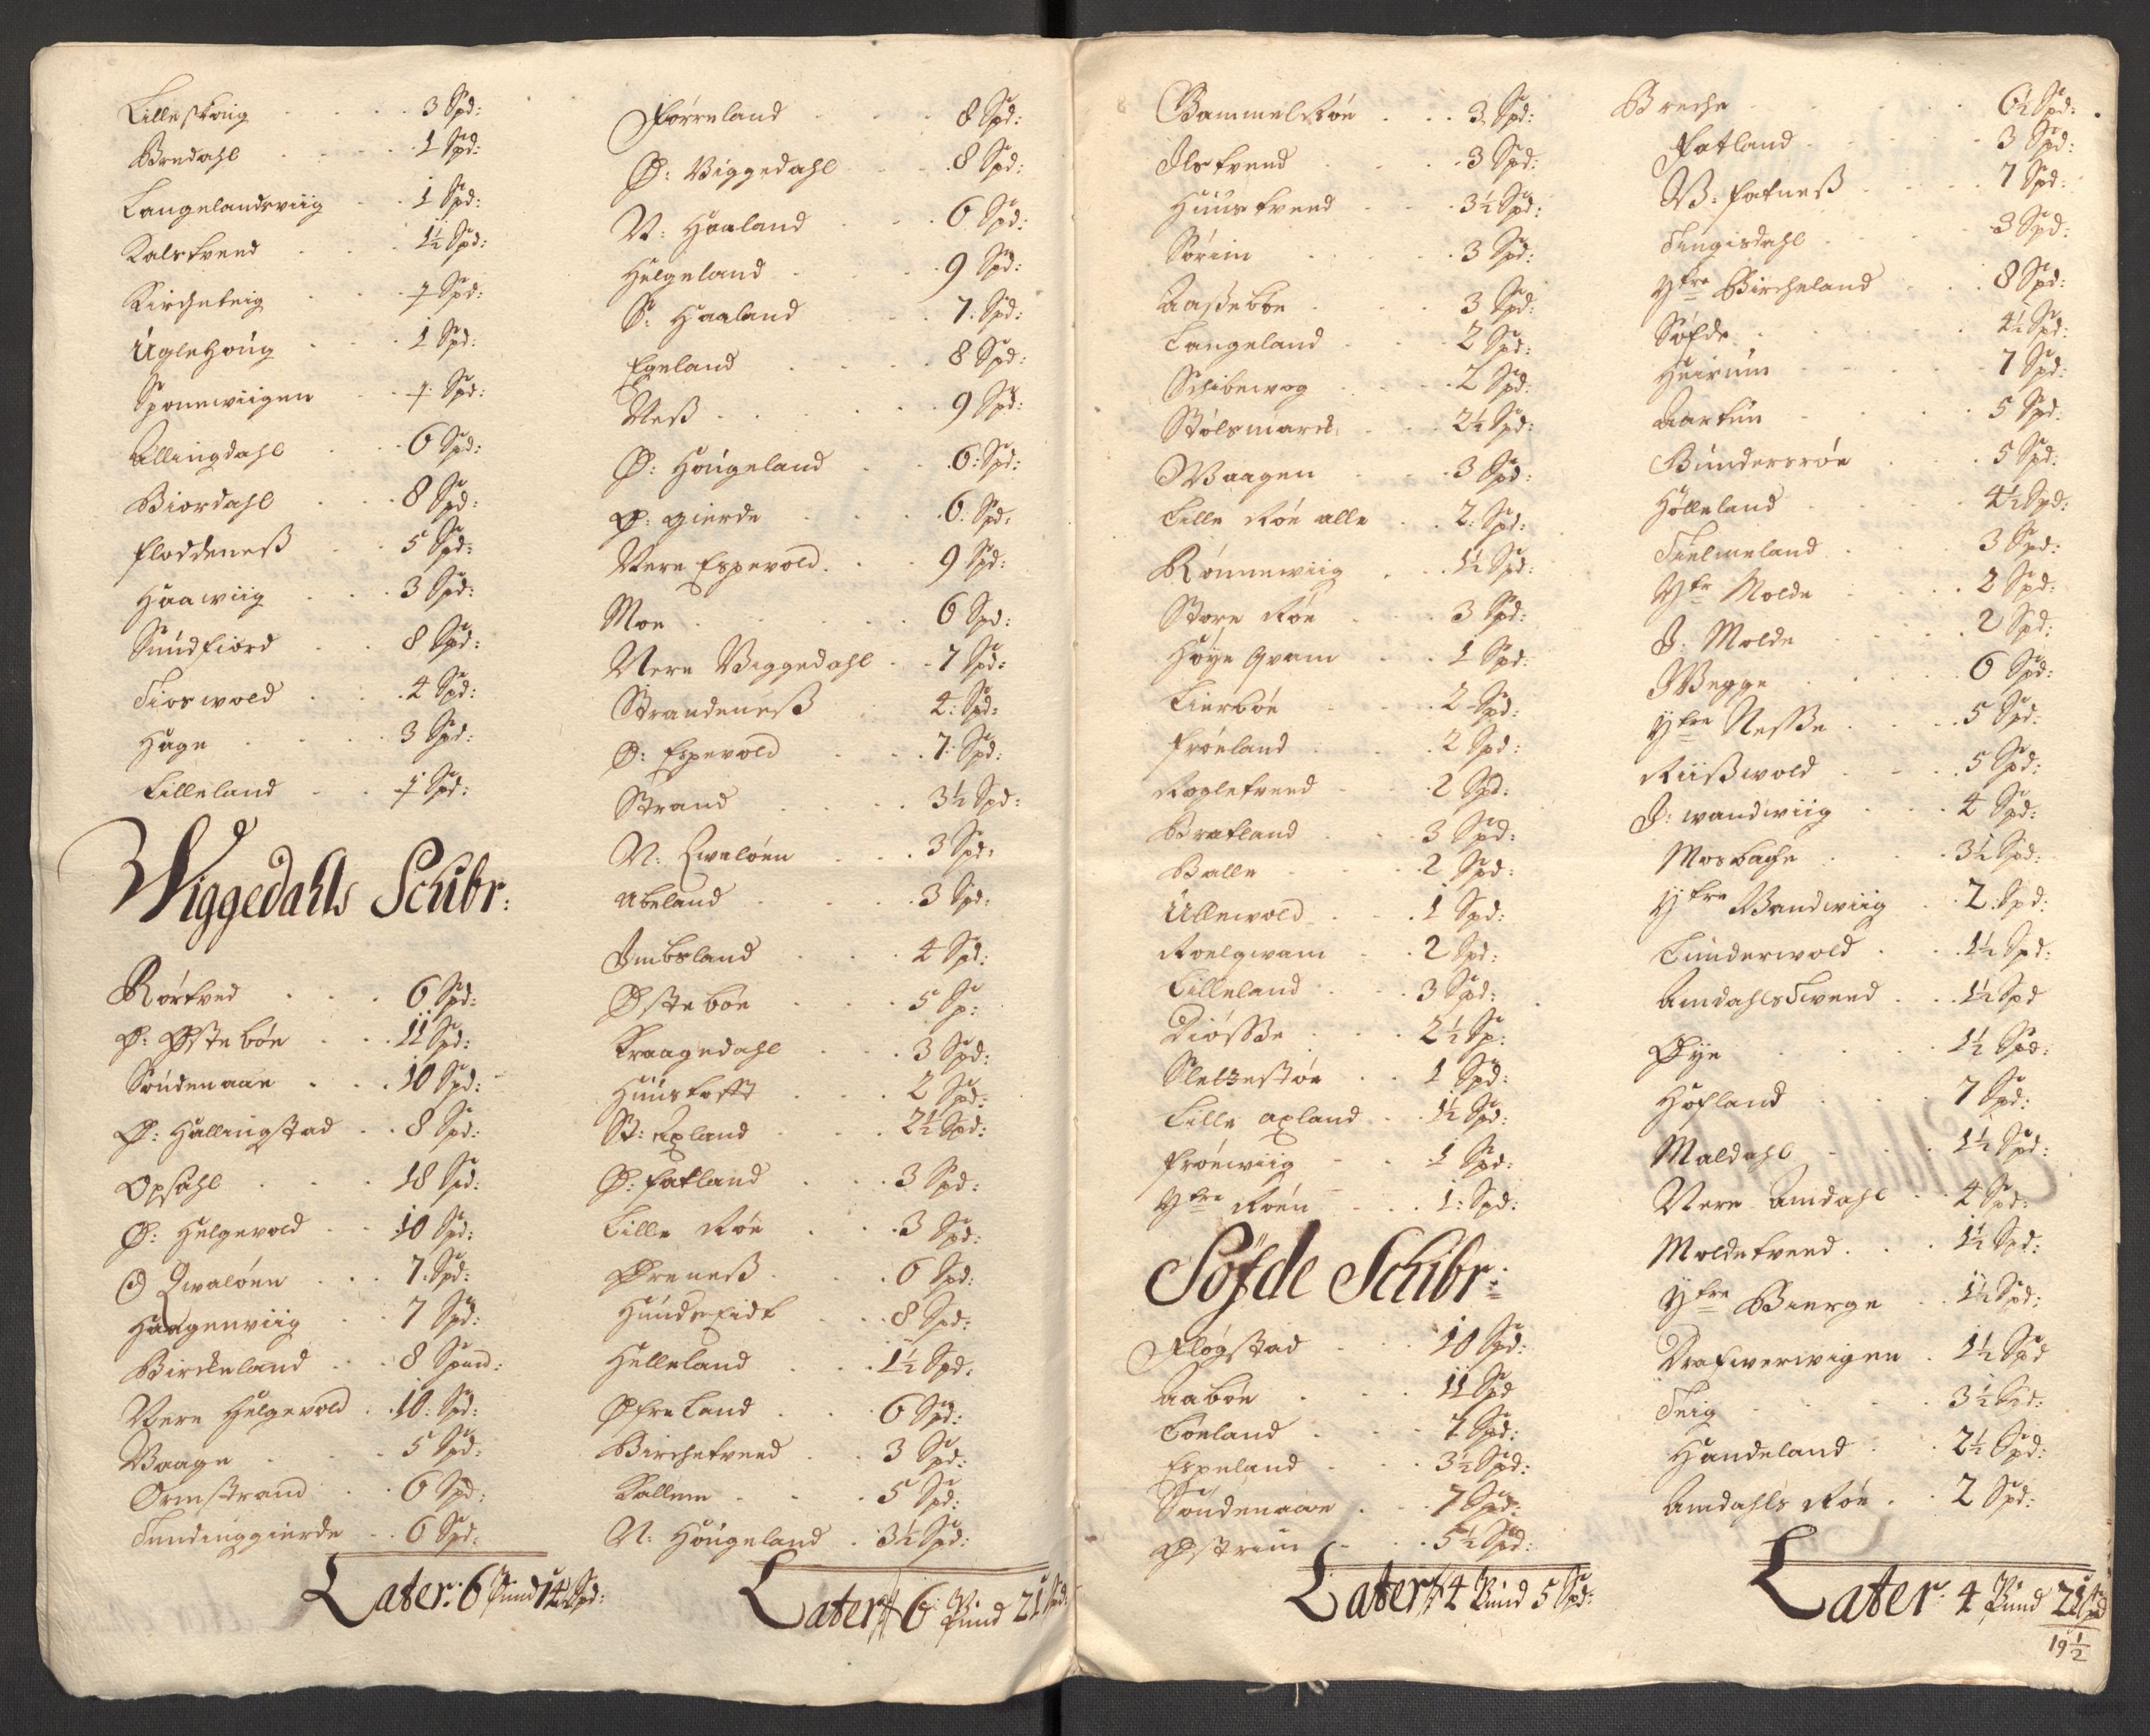 Lilleskoug . . . . 3 Spd:
Bredahl . . . . 1 Spd:
Langelandsviig . . 1 Spd:
Kalstveed . . . 1½ Spd:
Kircheteig . . . ½ Spd:
Uglehoug . . . 1 Spd:
Sponewiigen . . ½ Spd:
Allingdahl . . 6 Spd:
Biordahl . . . 8 Spd:
Floddeneß . . 5 Spd:
Haawiig . . . 3 Spd:
Sundfiord . . 8 Spd:
Tioswold . . . 4 Spd:
Hage . . . . 3 Spd:
Lilleland . . ½ Spd:
Wiggedahls Schibr:
Rörtved . . . 6 Spd:
Ø: Østeböe . . . 11 Spd:
Söndenaae . . . 10 Spd:
Ø: Hallingstad . . 8 Spd:
Opsahl . . . 18 Spd:
Ø: Helgevold . . 10 Spd:
Ø Qvalöen . . . 7 Spd:
Haagenviig . . 7 Spd:
Birckeland . . . 8 Spand:
Nere Helgevold . 10: Spd:
Vaage . . . 5 Spd:
Ormstrand . . 6 Spd:
Tendinggierde . . 6 Spd:
Later: 6 Pund 14 Spd:
Förreland . . . . 8 Spd:
Ø: Viggedahl . . . 8 Spd:
N: Haaland . . . 6 Spd:
Helgeland . . . 9 Spd:
S: Haaland . . . 7 Spd:
Egeland . . . . 8 Spd:
Neß . . . . . 9 Spd:
Ø: Hougeland . . 6: Spd:
Ø: Gierde . . . . 6: Spd:
Nere Espevold . . 9 Spd:
Moe . . . . . 6 Spd:
Nere Viggedahl . . 7 Spd:
Strandeneß . . 4: Spd:
Ø: Espevold . . . 7: Spd:
Strand . . . . 3½ Spd:
N: Qvalöen . . . 3 Spd:
Abeland . . . . 3 Spd:
Imbsland . . . 4 Spd:
Østeböe . . . 5 Sp:
Kraagedahl . . . 3 Spd:
Huustofft . . . 2 Spd:
St: Axland . . . 2½ Spd:
Ø: Fatland . . . 3 Spd:
Lille Röe . . . 3 Spd:
Øreneß . . . . 6 Spd:
Hundseidt . . . 8 Spd:
Helleland . . . 1½ Spd:
Øfreland . . . 6 Spd:
Birchetveed . . 3 Spd:
Kallem . . . 5 Spd:
N: Hougeland . 3½ Spd:
Later 6 Pund 21 Spd:
Gammelröe . . . 3 Spd:
Ilstveed . . . . 3 Spd:
Huustveed . . . 3½ Spd:
Sörim . . . . 3 Spd:
Aaseböe . . . . 3 Spd:
Langeland . . . 2 Spd:
Schibevog . . . 2 Spd:
Stölsmarck . . . 2½ Spd:
Waagen . . . 3 Spd:
Lille Röe alle . . 2: Spd:
Rönnewiig . . . 1½ Spd:
Store Röe . . . 3 Spd:
Höye Qvam . . 1 Spd:
Lierböe . . . 2 Spd:
Fröeland . . . 2 Spd:
Rogletveed . . . 2 Spd:
Bratland . . . 3 Spd:
Balle . . . . 2 Spd:
Ullewold . . . 1 Spd:
Roelqwam . . 2 Spd:
Lilleland . . . 3 Spd:
Diösse . . . . 2½ Sp:
Sletteståe . . 1 Spd:
Lille Axland . . 1½ Spd:
Fröewiig . . . 1 Spd:
Yttre Röen . . . 1: Spd:
Söfde Schibr:
Flögstad . . . 10 Spd:
Aaböe . . . 11 Spd
Löeland . . . 7 Spd:
Espeland . . . 3½ Spd:
Söndenaae . . . 7 Spd:
Østrim . . . 5½ Spd:
Later 4 Pund 5 Spd:
Breche . . . . . 6½ Spd:
Fatland . . . . 3 Spd:
W: Fatneß . . . 7 Spd:
Tengisdahl . . . 3 Spd:
Yttre Bircheland . . 8 Spd:
Söfde . . . . . 4½ Spd:
Heirum . . . . 7 Spd:
Aartun . . . . 5 Spd:
Gundersröe . . . 5 Spd:
Hölleland . . . 4½ Spd:
Tielmeland . . . 3 Spd:
Ytre Molde . . . 2 Spd:
I: Molde . . . 2 Spd:
Wegge . . . . 6 Spd:
Yttre Nesse . . . 5 Spd:
Riiswold . . . 5 Spd:
I: wandwiig . . . 4 Spd:
Mosbache . . . 3½ Spd:
Yttre Wandwiig . . 2: Spd:
Lunderwold . . . 1½ Spd:
Amdahlstveed . . . 1½ Spd
Øye . . . . 1½ Spd:
Hofland . . . . 7 Spd:
Maldahl . . . 1½ Spd:
Nere Amdahl . . 4 Spd:
Moldetveed . . . 1½ Spd:
Yttre Bierge . . 1½ Spd:
Drafwerwigen . 1½ Spd
Teig . . . . . 3½ Spd:
Handeland . . 2½ Spd:
Amdahls Röe . . 2 Spd:
Later: 4 Pund 21 Spd
19½